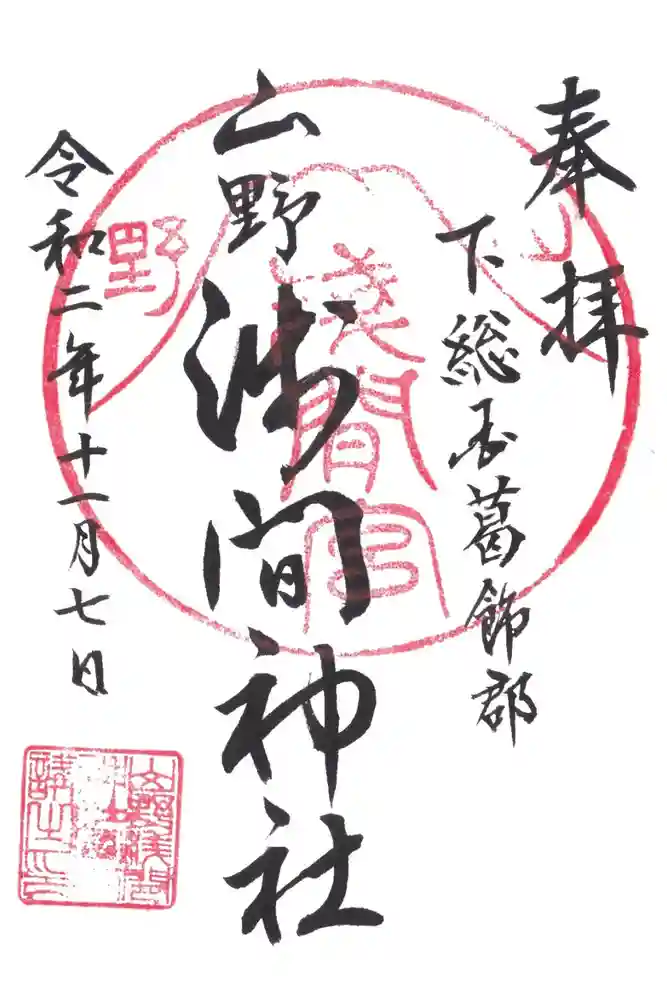 奉拝
下総国葛飾郡
山野浅間神社
令和二年十一月七日
山野
浅間宮